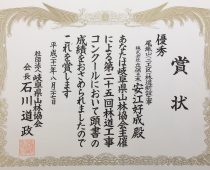 賞状
優秀
尾根山三之瓦林道新設工事
安江好成殿
あなたは岐阜県山林協会主催
による第二十五回林道工事
コンクールにおいて頭書の
成績をおさめられましたので
これを賞します
平成二十二年八月二十七日
社団法人岐阜県山林協会
会長石川道政